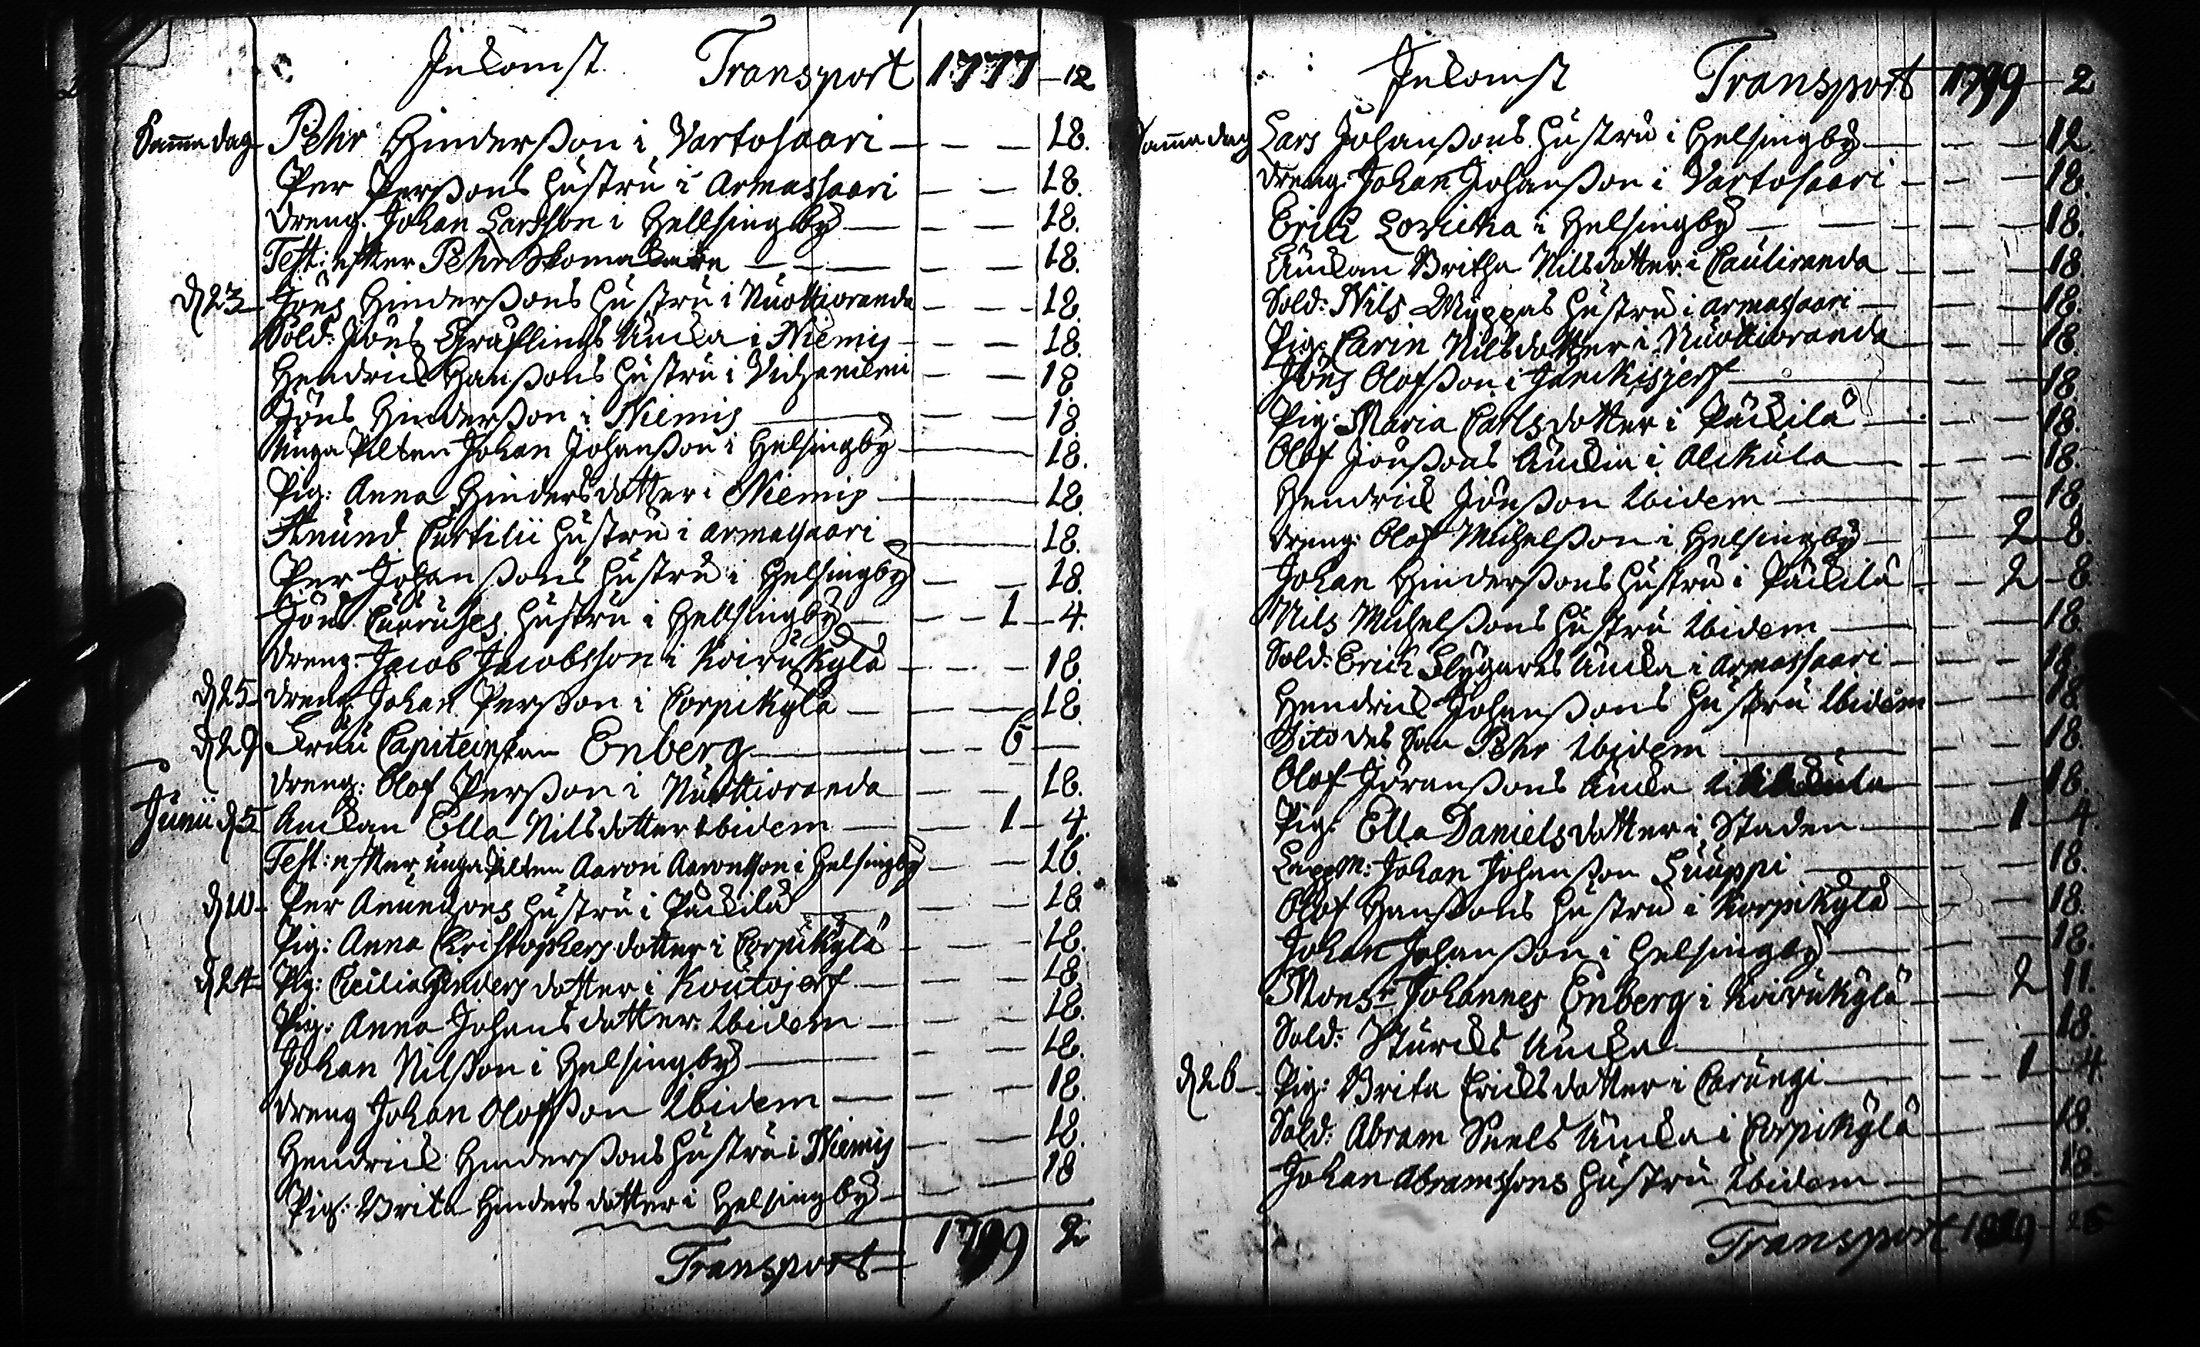 Inkomst Transport 1777 - 12
Samma dag Pehr Hinderßon i Vartosaari — — — 18.
Per Perßons hustru i Armassaari — — 18.
dreng. Johan Larsson i Hellsingby — — — 18.
Test: efter Pehr Skomakare — — — — 18.
d 23 Jöns Hinderßons hustru i Nuottioranda — — 18.
Sold: Jöns Gräflings Enka i Niemis — — — 18.
Hendrick Hanßons hustru i — — 18
Jöns Hinderßon i Niemis — — — 18.
Unga Pilten Johan Johanßon i Helsingby — 18.
Pig: Anna Hindersdotter i Niemis — 18.
Amund Curtilii hustru i Armassaari — 18.
Per Johanßons hustru i Helsingby — — 18.
Jöns hustru i Hellsingby — — — 1 — 4.
dreng: Jacob Jacobsson i Koirukylä — — — 18.
d 25 dreng Johan Perßon i Corpikylä — — 18.
d 29 Fru Capiteinskan Enberg — — 6 —
dreng: Olof Perßon i Nuottioranda — — 18.
Junii d 5 Enkan Ella Nilsdotter ibidem — — 1 — 4.
Test: efter unga Pilten Aaron Aaronsson i Helsingby — — 16.
d 10 Per Amundsons hustru i Päckilä — — 18.
Pig: Anna Christophersdotter i Corpikylä — — — 18.
d 24 Pig: Cecilia Hindersdotter i Koutojerf — — — 18
Pig: Anna Johansdotter ibidem — — — 18.
Johan Nilßon i Helsingby — — — 18.
dreng Johan Olofßon ibidem — — — 18.
Hendrick Hinderßons hustru i Niemis — — 18.
Pig: Brita Hindersdotter i Helsingby — — — 18
Transport — 1799 2
Inkomst Transport 1799 — 2
Samma dag Lars Johanßons hustru i Helsingby — — — 12.
dreng: Johan Johanßon i Vartosaari — — — 18.
Erich Lovicka i Helsingby — — — — 18.
Enkan Britha Nilsdotter i Pauliranda — — — 18
Sold: Nils hustru i Armassaari — — — 18.
Pig: Carin Nilsdotter i Nuottioranda — — 18.
Jöns Olofßon i Jänkisjerf — — — 18.
Pig: Maria Carlsdotter i Päckilä — — — 18.
Olof Jönßons Enka i Alckula — — — 18.
Hendrick Jönßon ibidem — — — 18
dreng: Olof Michelßon i Helsingby — — 2 — 8.
Johan Hinderßons hustru i Päckilä — — 2 — 8
Nils Michelßons hustru ibidem — — — 18.
Sold: Erich Flygares Enka i Armassaari — — — 18.
Hendrick Johanßons hustru ibidem — — — 18
Dito des Son Pehr ibidem — — — 18.
Olof Jöranßons Enka — — 18.
Pig: Ella Danielsdotter i Staden — — 1 — 4.
Lappm: Johan Johanßon — — 18.
Olof Hanßons hustru i Korpikylä — — — 18.
Johan Johanßon i Helsingby — — — 18.
Monsr: Johannes Enberg i Koirukylä — — 2 11.
Sold: Sturcks Enka — — — 18.
d 26 Pig: Brita Ericksdotter i Carungi — — 1 — 4
Sold: Abram Enka i Corpikylä — — — 18.
Johan Abramssons hustru ibidem — — — 18.
Transport